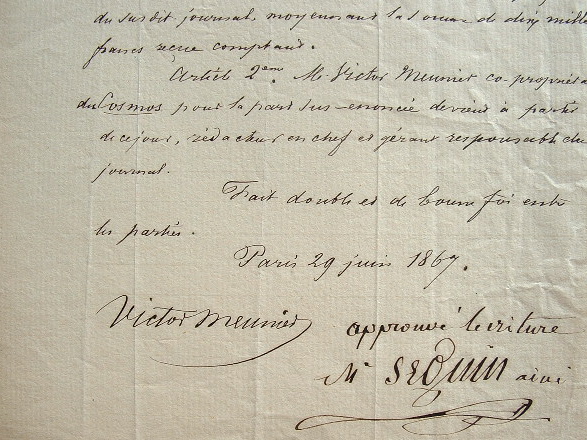 du susdit journal, moyennant la somme de dix mille
francs reçue comptant.
Article 2eme. M. Victor Meunier co-propriéta
du Cosmos pour la part sus-énoncée devient à partir
de ce jour, rédacteur en chef et gérant responsable du
journal.
Fait double et de bonne foi entre
les parties.
Paris 29 juin 1867.
Victor Meunier
approuvé l'écriture
Mc SEGUIN ainé